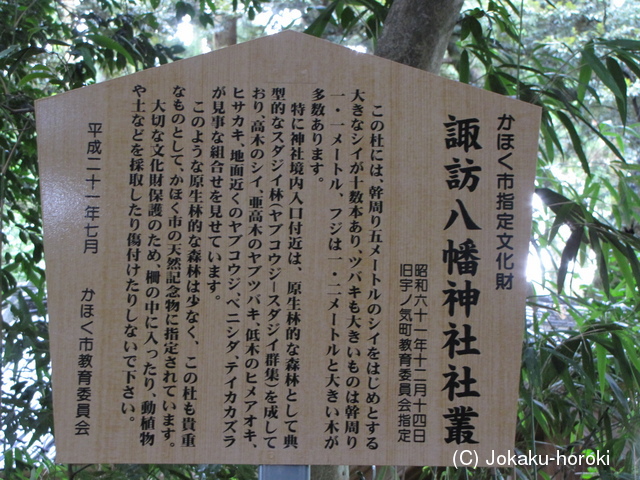 かほく市指定文化財
諏訪八幡神社社叢
昭和六十一年十二月十四日
旧宇ノ気町教育委員会指定
この杜には、幹周り五メートルのシイをはじめとする
大きなシイが十数本あり、ツバキも大きいものは幹周り
一・一メートル、フジは一・二メートルと大きい木が
多数あります。
特に神社境内入口付近は、原生林的な森林として典
型的なスダジイ林（ヤブコウジ―スダジイ群集）を成して
おり、高木のシイ、亜高木のヤブツバキ、低木のヒメアオキ、
ヒサカキ、地面近くのヤブコウジ、ベニシダ、テイカカズラ
が見事な組合せを見せています。
このような原生林的な森林は少なく、この杜も貴重
なものとして、かほく市の天然記念物に指定されています。
大切な文化財保護のため、柵の中に入ったり、動植物
や土などを採取したり傷付けたりしないで下さい。
平成二十一年七月
かほく市教育委員会
(C) Jokaku-horoki